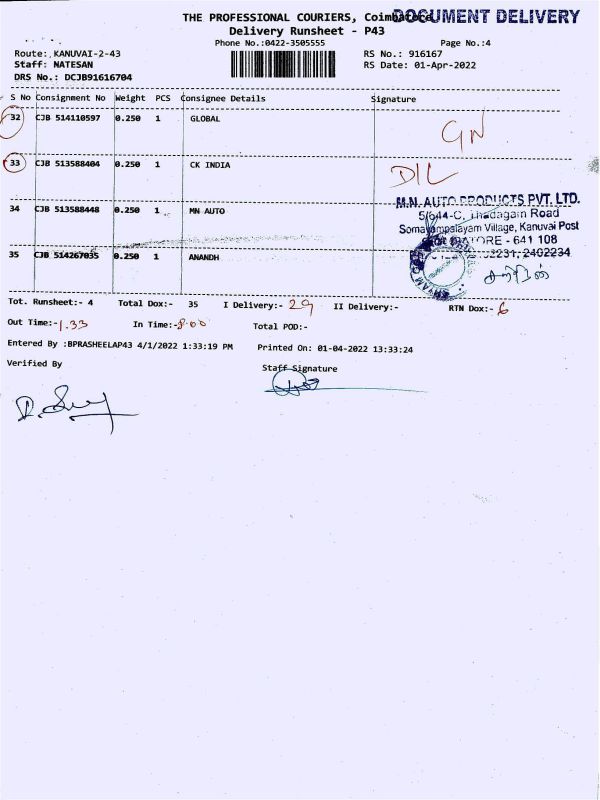 THE PROFESSIONAL COURIERS, Coimbatore
DOCUMENT DELIVERY
Delivery Runsheet - P43
Phone No.:0422-3505555
Page No.:4
Route: KANUVAI-2-43
RS No.: 916167
Staff: NATESAN
RS Date: 01-Apr-2022
DRS No.: DCJB91616704
S No Consignment No Weight PCS Consignee Details Signature
32 CJB 514110597 0.250 1 GLOBAL GN
33 CJB 513588404 0.250 1 CK INDIA DIL
34 CJB 513588448 0.250 1 MN AUTO
M.N. AUTO PRODUCTS PVT. LTD.
5/644-C, Thadagam Road
Somayampalayam Village, Kanuvai Post
COIMBATORE - 641 108
2402234
35 CJB 514267035 0.250 1 ANANDH
Tot. Runsheet:- 4 Total Dox:- 35 I Delivery:- 29 II Delivery:- RTN Dox:- 6
Out Time:-1.33 In Time:-8.00 Total POD:-
Entered By :BPRASHEELAP43 4/1/2022 1:33:19 PM Printed On: 01-04-2022 13:33:24
Verified By
Staff Signature